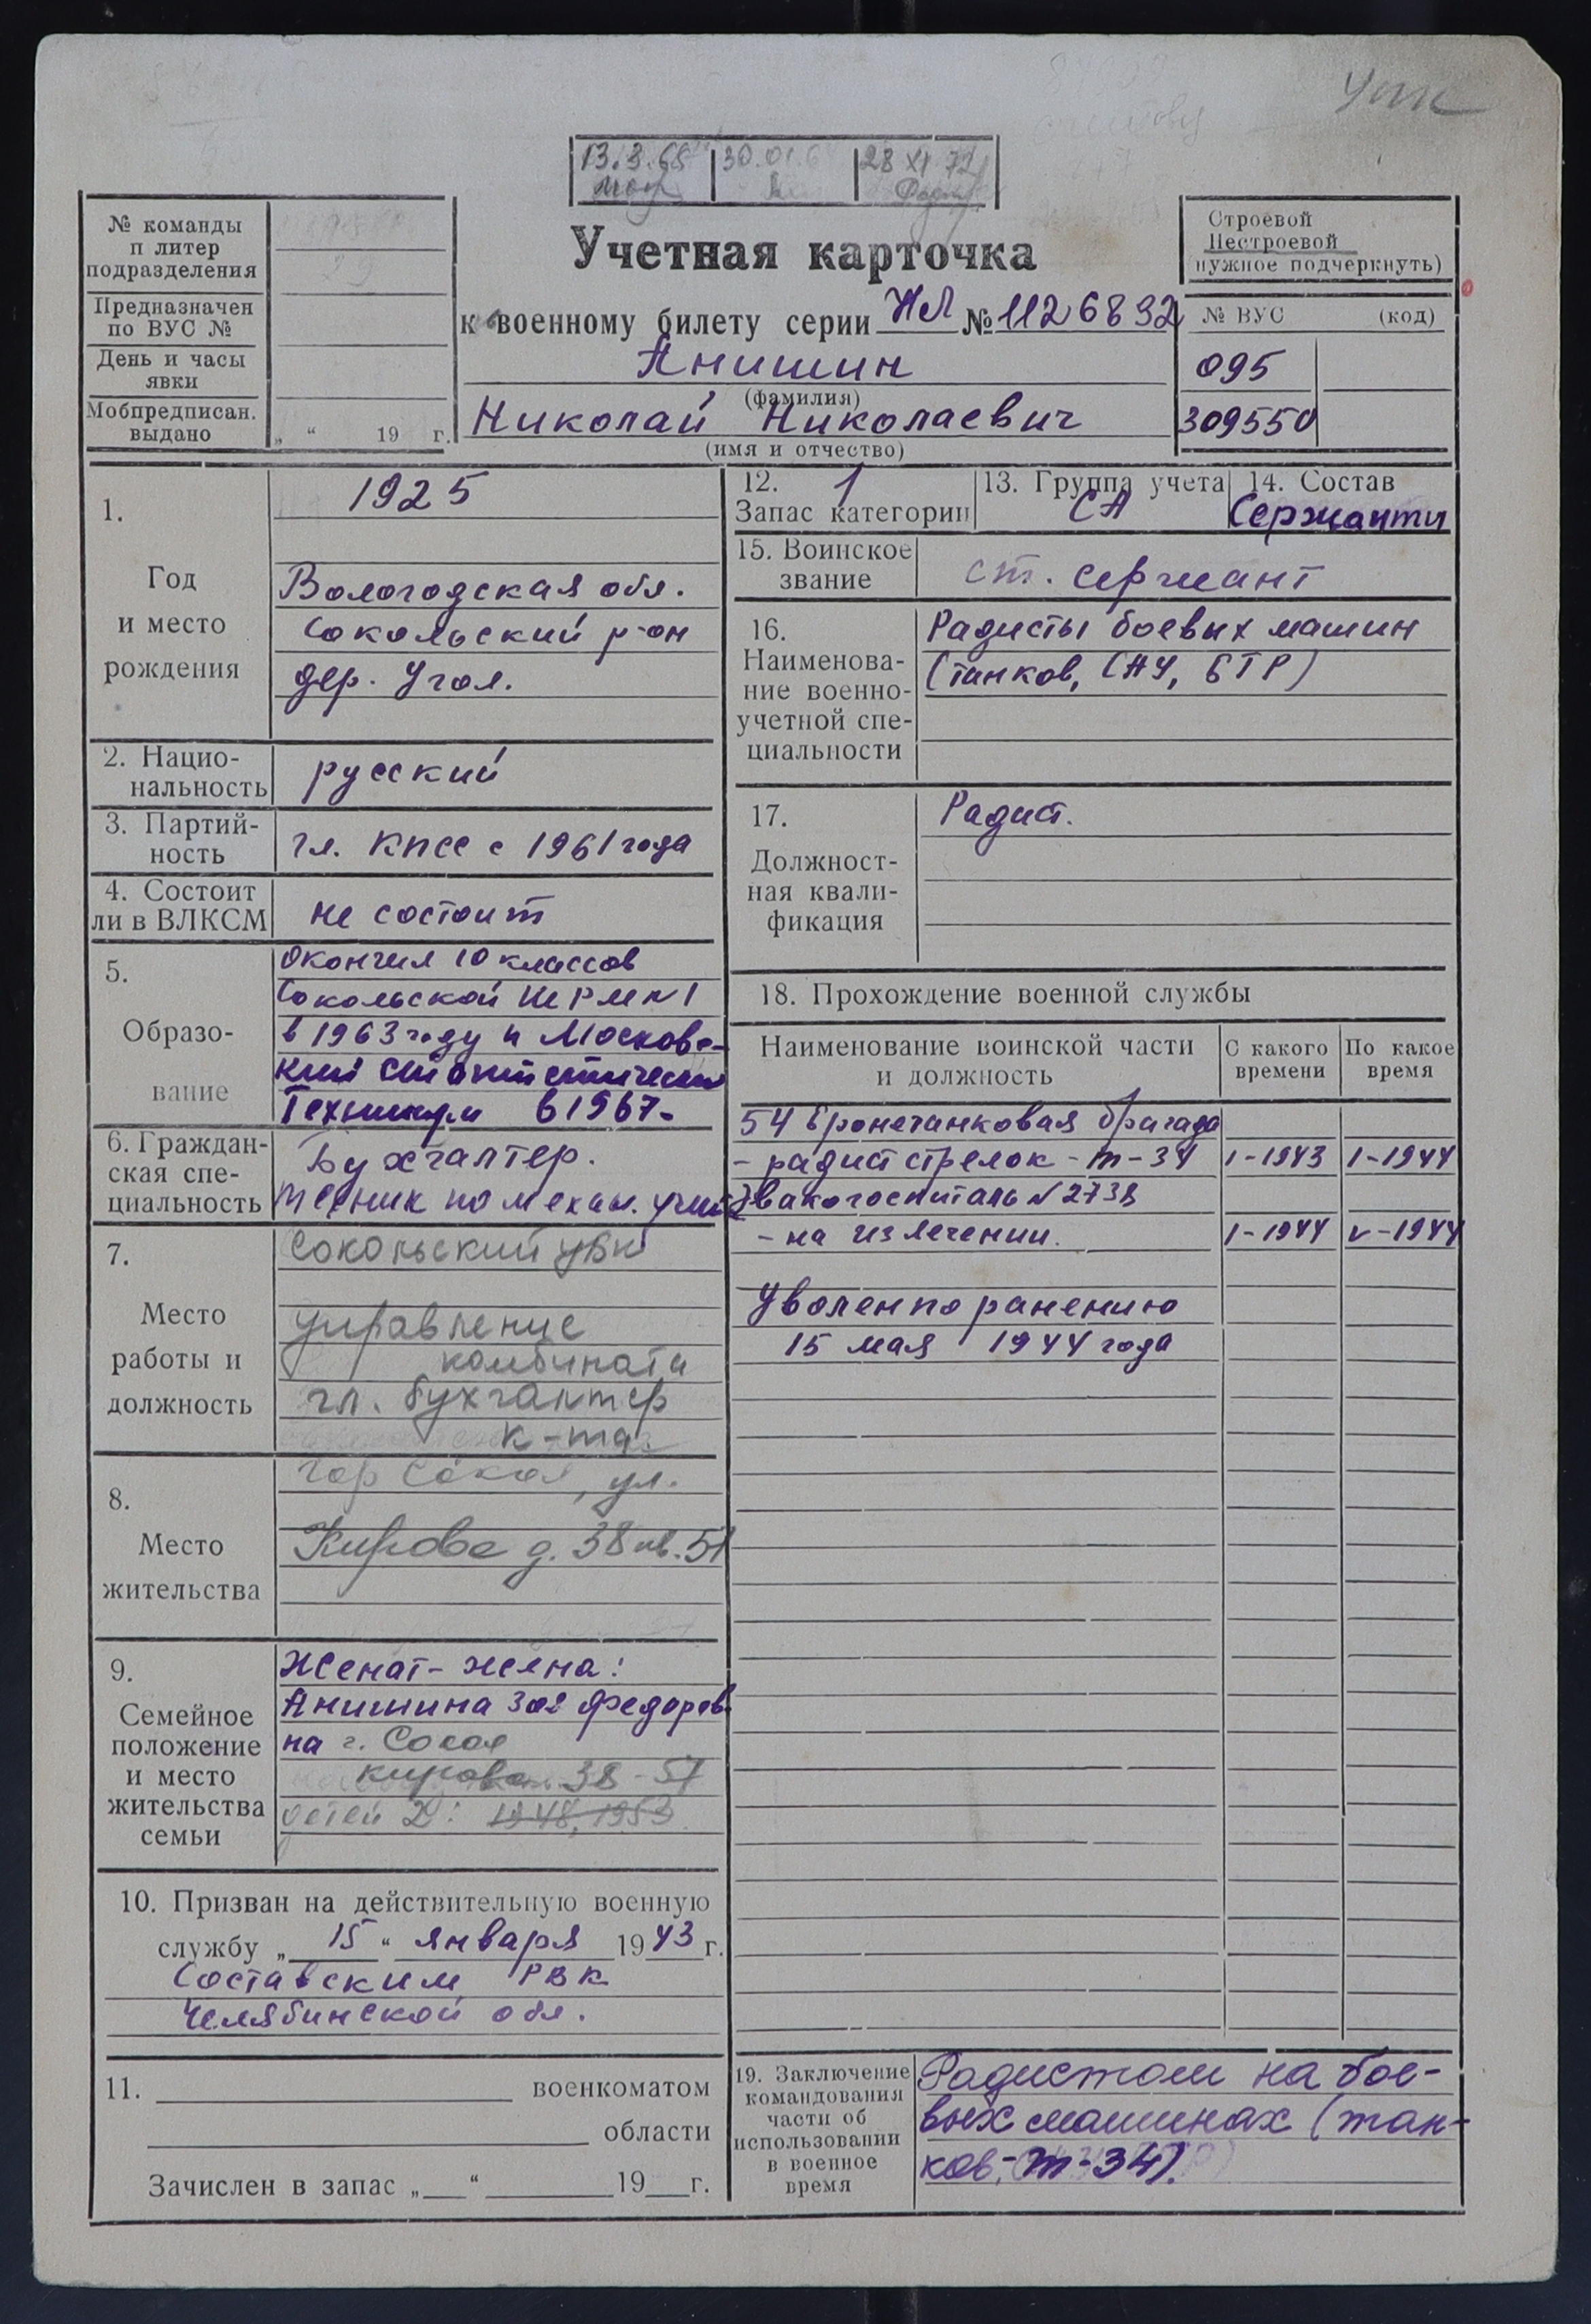 13.3.65
30.01.6
28 XI 72
№ команды
п литер
подразделения
Предназначен
по ВУС №
День и часы
явки
Мобпредписан.
выдано
„ “ 19 г.
Учетная карточка
к военному билету серии НЛ № 1126892
Анишин
(фамилия)
Николай Николаевич
(имя и отчество)
Строевой
Нестроевой
нужное подчеркнуть)
№ ВУС (код)
095
309550
1.
Год
и место
рождения
1925
Вологодская обл.
Сокольский р-он
дер. Угол.
2. Нацио-
нальность
русский
3. Партий-
ность
чл. КПСС с 1961 года
4. Состоит
ли в ВЛКСМ
не состоит
5.
Образо-
вание
Окончил 10 классов
Сокольской ШРМ №1
в 1963 году и Московс-
кий статистический
Техникум в 1967-
6. Граждан-
ская спе-
циальность
Бухгалтер.
Техник по механ. учет
7.
Место
работы и
должность
Сокольский ЦБК
управление
комбината
гл. бухгалтер
к-та.
8.
Место
жительства
гор Сокол, ул.
Кирова д. 38 кв. 51
9.
Семейное
положение
и место
жительства
семьи
Женат - жена:
Анишина Зоя Федоров-
на г. Сокол
Кирова 38-51
детей 2: 1948, 1953
10. Призван на действительную военную
службу „ 15 “ января 1943 г.
Составским РВК
Челябинской обл.
11. военкоматом
области
Зачислен в запас „ “ 19 г.
12. 1
Запас категории
13. Группа учета
СА
14. Состав
Сержанты
15. Воинское
звание
ст. сержант
16.
Наименова-
ние военно-
учетной спе-
циальности
Радисты боевых машин
(танков, САУ, БТР)
17.
Должност-
ная квали-
фикация
Радист.
18. Прохождение военной службы
Наименование воинской части
и должность
С какого
времени
По какое
время
54 Бронетанковая бригада
- радист стрелок - Т-34 I-1943 I-1944
Эвакогоспиталь №2738
- на излечении. I-1944 V-1944
Уволен по ранению
15 мая 1944 года
19. Заключение
командования
части об
использовании
в военное
время
Радистом на бое-
вых машинах (тан-
ков,- Т-34).